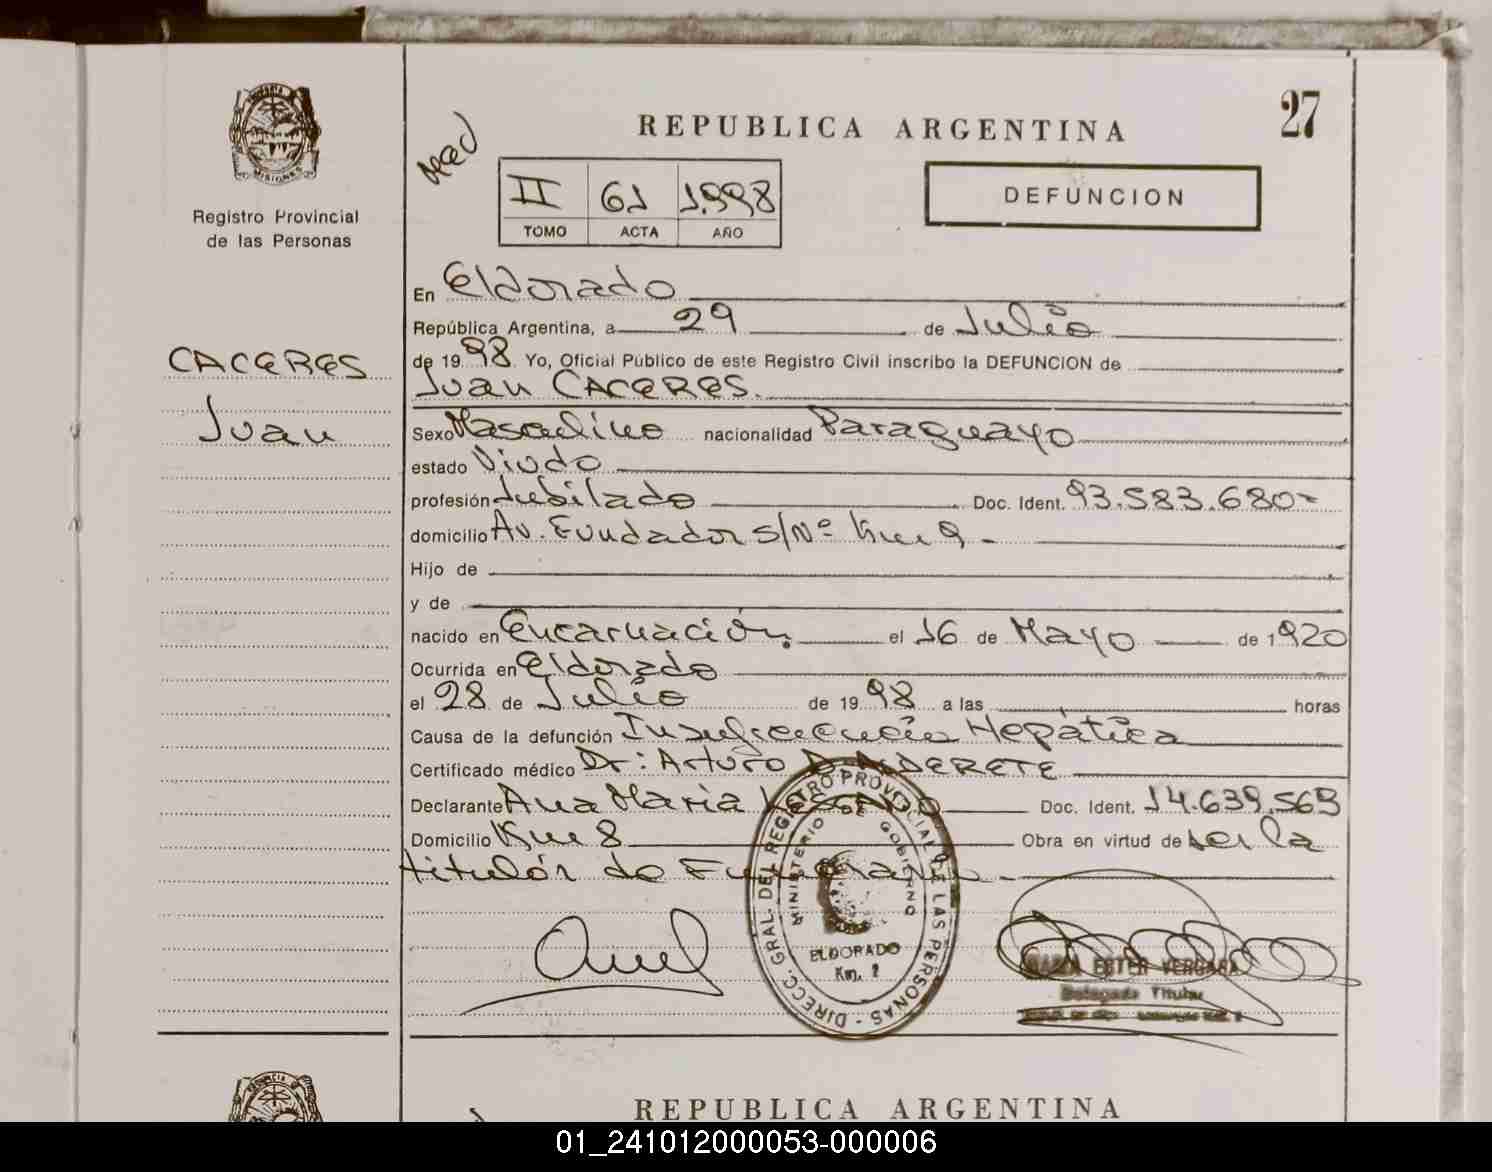 27
REPUBLICA ARGENTINA
DEFUNCION
II 61 1.998
TOMO ACTA AÑO
PROVINCIA DE
MISIONES
Registro Provincial
de las Personas
CACERES
Juan
En Eldorado
República Argentina, a 29 de Julio
de 1998 Yo, Oficial Público de este Registro Civil inscribo la DEFUNCION de
Juan CACERES.
Sexo Masculino nacionalidad Paraguayo
estado Viudo
profesión Jubilado Doc. Ident. 93.583.680-
domicilio Av. Fundador s/Nº Km 9 -
Hijo de
y de
nacido en Encarnación. el 16 de Mayo de 1920
Ocurrida en Eldorado
el 28 de Julio de 1998 a las horas
Causa de la defunción Insuficiencia Hepática
Certificado médico Dr: Arturo D. ALDERETE
Declarante Ana Maria Doc. Ident. 14.639.569
Domicilio Km 8 Obra en virtud de ser la
titular de Funeraria -
DIRECC. GRAL. DEL REGISTRO PROVINCIAL DE LAS PERSONAS -
MINISTERIO DE GOBIERNO
ELDORADO
Km. 2
MARIA ESTER VERGARA
Delegada Titular
REPUBLICA ARGENTINA
01_241012000053-000006